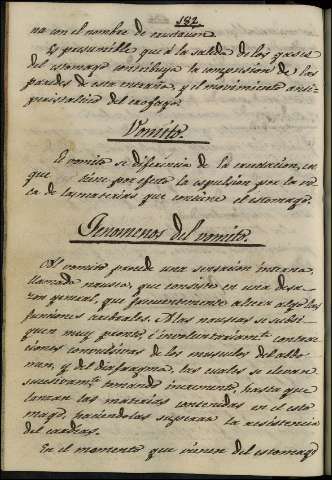 182
na con el nombre de erutacion.
Es presumible que á la salida de los gases
del estomago contribuya la compresion de las
paredes de esta entraña, y el movimiento anti-
peristaltico del esofago.
Vomito.
El vomito se diferencia de la erutacion, en
que tiene por efecto la espulsion por la bo-
ca de las materias que contiene el estomago.
Fenomenos del vomito.
Al vomito precede una sensacion interna,
llamada nausea, que consiste en una desa-
zon general, que frecuentemente altera algo las
funciones cerebrales. A las nauseas se subsi-
guen muy pronto é involuntariamte contrac-
ciones convulsivas de los musculos del abdo-
men, y del diafragma, las cuales se elevan
sucesivamte tomando incremento, hasta que
lanzan las materias contenidas en el esto-
mago, haciendolas superar la resistencia
del cardias.
En el momento que vienen del estomago